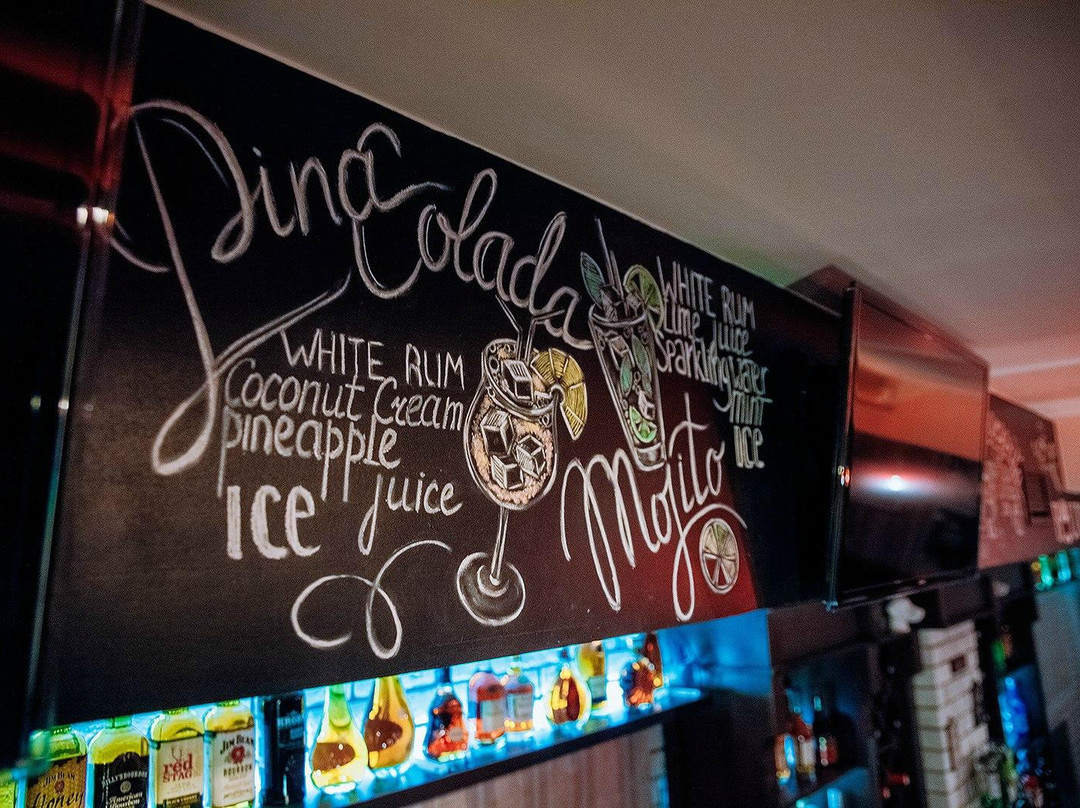 Pina
Colada
WHITE RUM
Coconut Cream
pineapple
juice
ICE
WHITE RUM
Lime juice
Sparkling water
mint
ICE
Mojito
JIM BEAM
Honey
American
red
STAG
JIM BEAM
BOURBON